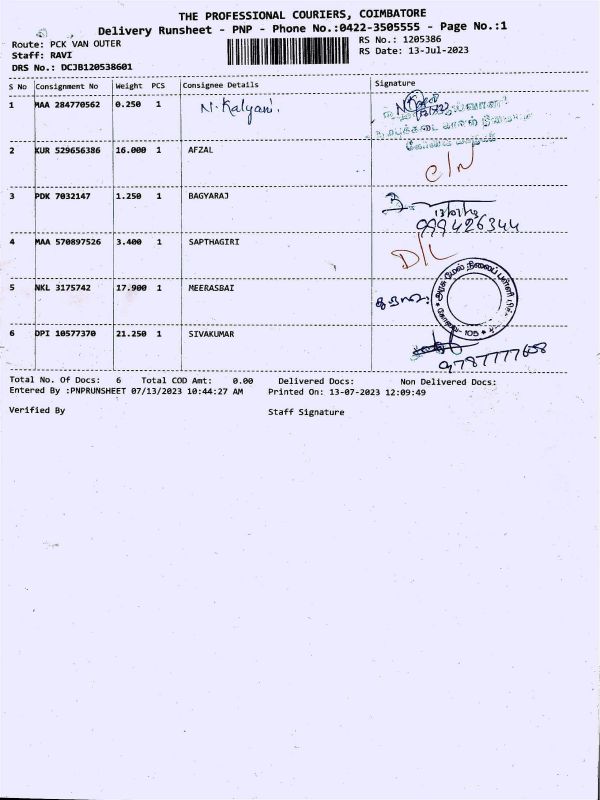 THE PROFESSIONAL COURIERS, COIMBATORE
Delivery Runsheet - PNP - Phone No.:0422-3505555 - Page No.:1
Route: PCK VAN OUTER
RS No.: 1205386
Staff: RAVI
RS Date: 13-Jul-2023
DRS No.: DCJB120538601
S No Consignment No Weight PCS Consignee Details Signature
1 MAA 284770562 0.250 1 N. Kalyani.
2 KUR 529656386 16.000 1 AFZAL
C/N
3 PDK 7032147 1.250 1 BAGYARAJ
4 MAA 570897526 3.400 1 SAPTHAGIRI D/L
5 NKL 3175742 17.900 1 MEERASBAI
அரசு மேல் நிலைப் பள்ளி
6 DPI 10577370 21.250 1 SIVAKUMAR
Total No. Of Docs: 6 Total COD Amt: 0.00 Delivered Docs: Non Delivered Docs:
Entered By :PNPRUNSHEET 07/13/2023 10:44:27 AM Printed On: 13-07-2023 12:09:49
Verified By Staff Signature